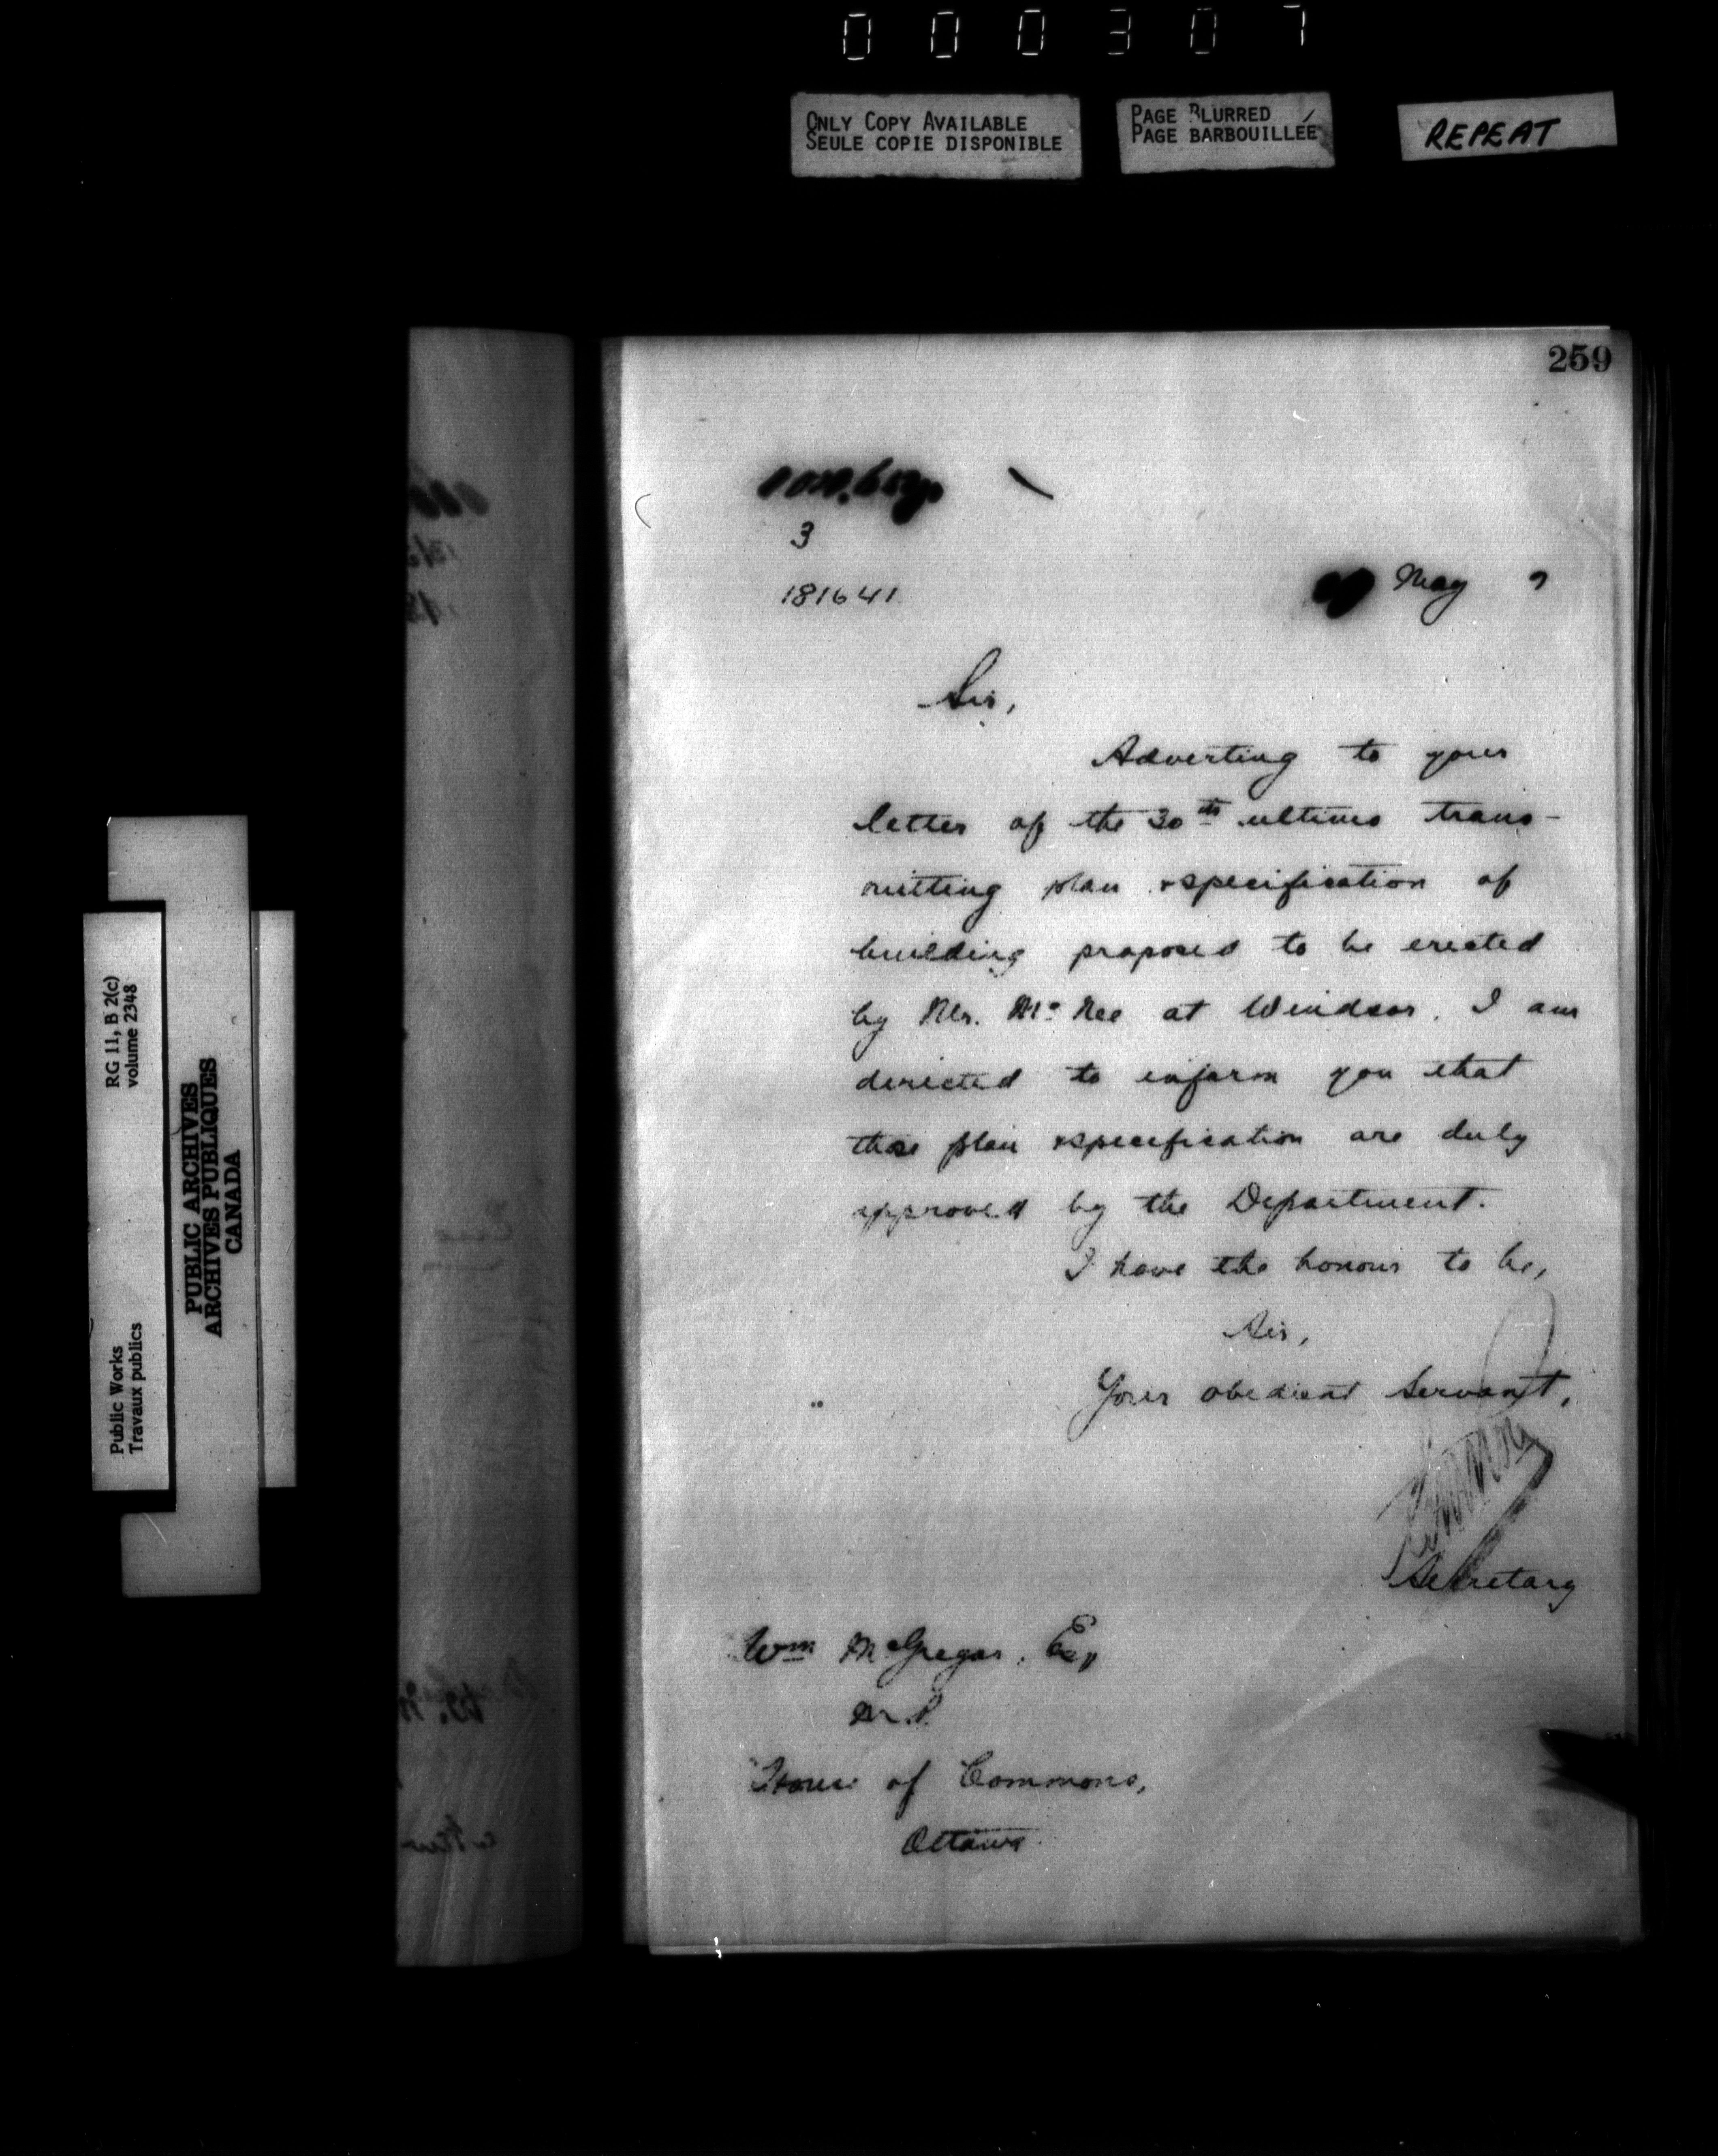 000307
ONLY COPY AVAILABLE
SEULE COPIE DISPONIBLE
PAGE BLURRED
PAGE BARBOUILLÉE
REPEAT
259
3
181641
May 7
Sir,
Adverting to your
letter of the 30th ultimo trans-
mitting plan & specification of
building proposed to be erected
by Mr. McNee at Windsor. I am
directed to inform you that
those plan & specification are duly
approved by the Department.
I have the honour to be,
Sir,
Your obedient Servant,
Secretary
Wm McGregor, Esq
M.P.
House of Commons,
Ottawa
RG 11, B 2(c)
volume 2348
PUBLIC ARCHIVES
ARCHIVES PUBLIQUES
CANADA
Public Works
Travaux publics